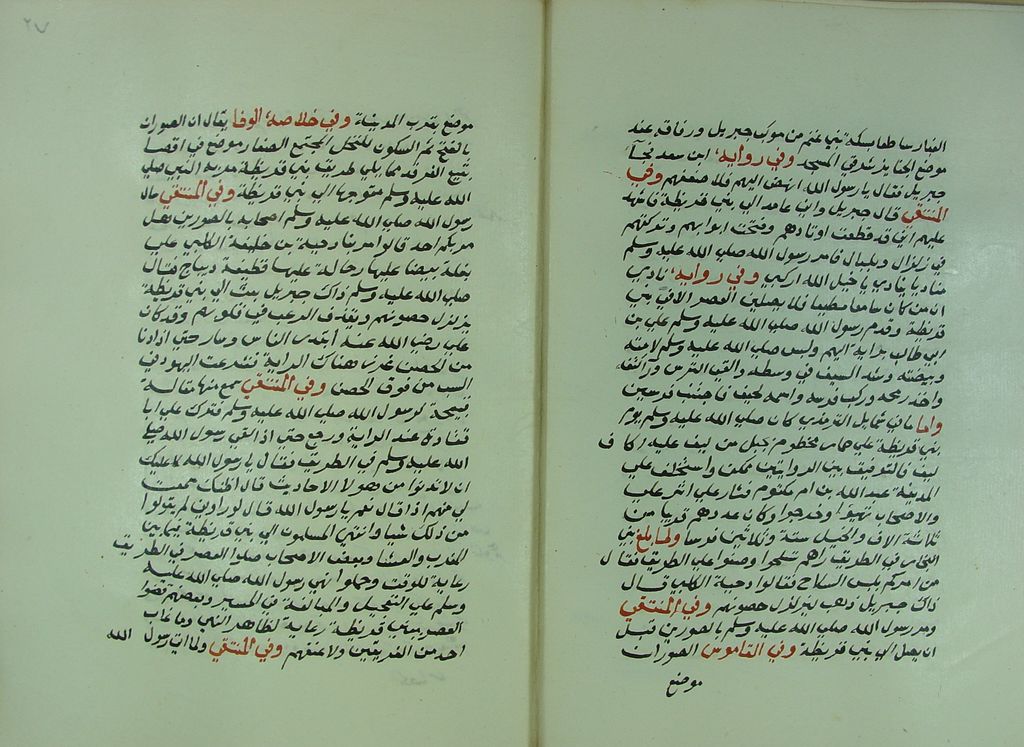 الغبار ساطعا سكة بني غنم من موكب جبريل ورفاقه عند
موضع الجنايز شرقي المسجد وفي رواية ابن سعد فجآ
جبريل فقال يا رسول الله انهض اليهم فلاضعضعنهم وفي
المنتقى قال جبريل واني عامد الى بني قريظة فانهد
عليهم اني قد قطعت اوتادهم وفتحت ابوابهم وتركتهم
في زلزال وبلبال فامر رسول الله صلي الله عليه وسلم
مناديا ينادي يا خيل الله اركبي وفي رواية نادي
ان من كان سامعا مطيعا فلا يصلين العصر الا في بني
قريظة وقدم رسول الله صلي الله عليه وسلم علي بن
ابي طالب براية اليهم ولبس صلي الله عليه وسلم لامته
وبيضته وشد السيف في وسطه والقى الترس ورآ كتفه
واخذ رمحه وركب فرسه واسمه لحيف فاجتنب فرسين
واما ما في شمايل الترمذي كان صلي الله عليه وسلم يوم
بني قريظة علي حمار مخطوم بحبل من ليف عليه اكاف
ليف فالتوفيق بين الروايتين ممكن واستخلف علي
المدينة عبد الله بن ام مكتوم فسار علي اثر علي
والاصحاب تهيؤا وخرجوا وكان عددهم قريبا من
ثلاثة الاف والخيل ستة وثلاثين فرسا ولما بلغ بني
النجار في الطريق راهم تسلحوا وصفوا علي الطريق فقال
من امركم بلبس السلاح فقالوا دحية الكلبي قال
ذاك جبريل ذهب ليزلزل حصونهم وفي المنتقى
ومر رسول الله صلي الله عليه وسلم بالصورين قبل
ان يصل الي بني قريظة وفي القاموس الصوران
موضع
٢٧
موضع بقرب المدينة وفي خلاصة الوفا يقال ان الصوران
بالفتح ثم السكون للنخل المجتمع الصغار موضع في اقصا
بقيع الغرقد مما يلي طريق بني قريظة مر به النبي صلي
الله عليه وسلم متوجها الي بني قريظة وفي المنتقي قال
رسول الله صلي الله عليه وسلم اصحابه بالصورين هل
مر بكم احد قالوا مر بنا دحية بن خليفة الكلبي علي
بغلة بيضا عليها رحالة عليها قطيفة ديباج فقال
صلي الله عليه وسلم ذاك جبريل بعث الي بني قريظة
يزلزل حصونهم ويقذف الرعب في قلوبهم وقد كان
علي رضي الله عنه ابتدر الناس وسار حتي اذا دنا
من الحصن غرس هناك الراية فشرعت اليهود في
السب من فوق الحصن وفي المنتقى سمع منها مقالة
قبيحة لرسول الله صلي الله عليه وسلم فترك علي ابا
قتادة عند الراية ورجع حتي اذ القي رسول الله صلي
الله عليه وسلم في الطريق فقال يا رسول الله لا عليك
ان لا تدنوا من هولا الاحاديث قال اظنك سمعت
لي منهم اذا قال نعم يا رسول الله قال لو راوني لم يقولوا
من ذلك شيا وانتهي المسلمون الي بني قريظة فيما بين
المغرب والعشا وبعض الاصحاب صلوا العصر في الطريق
رعاية للوقت وحملوا نهي رسول الله صلي الله عليه
وسلم علي التعجيل والمبالغة في المسير وبعضهم قضوا
العصر ببني قريظة رعاية لظاهر النهي وما عاب
احد من الفريقين ولا عنفهم وفي المنتقي ولما اتي رسول الله